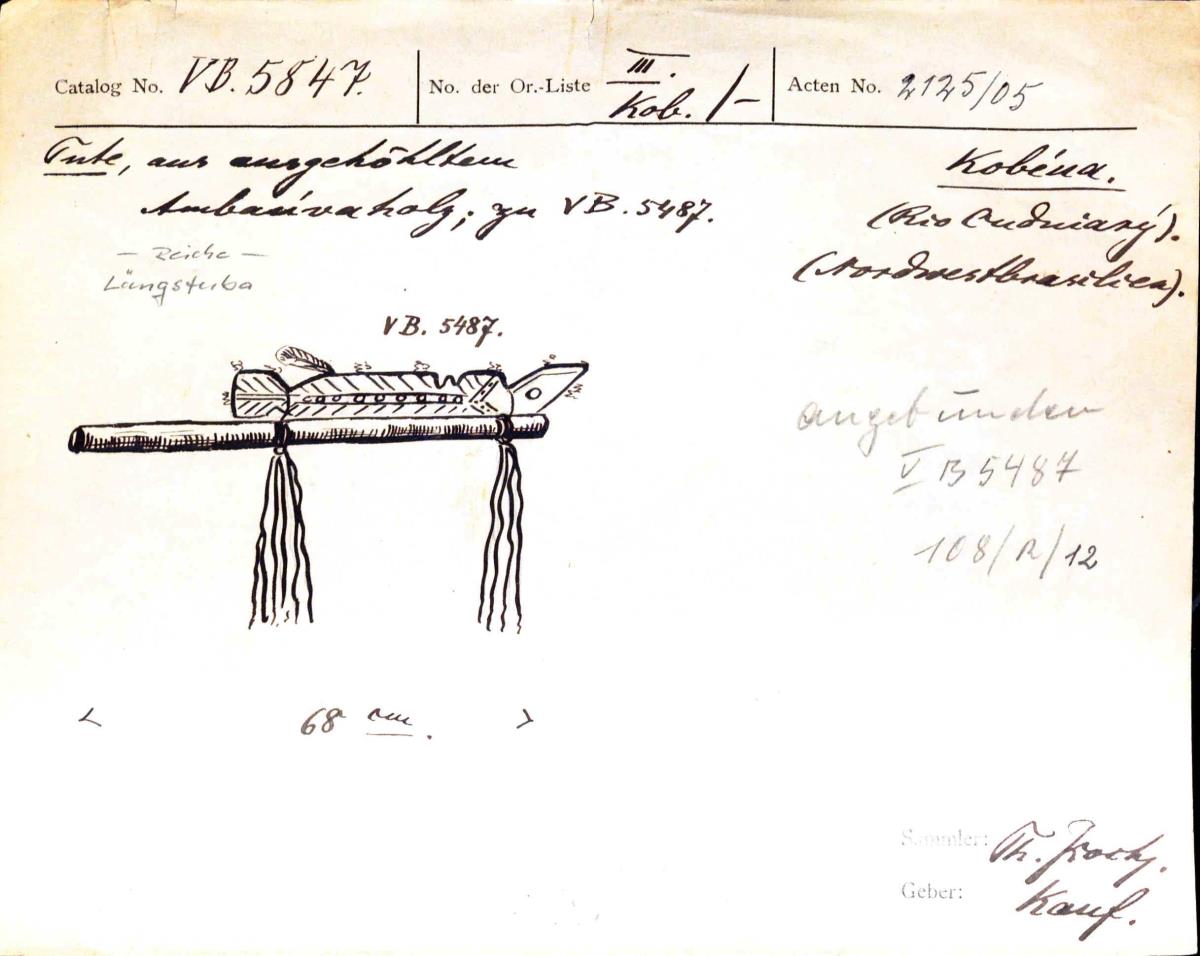 Catalog No. VB. 5847.
No. der Or.-Liste III. Kob. /–
Acten No. 2125/05
Tute, aus ausgehöhltem
Ambaúvaholz; zu VB. 5487.
Kobéua.
(Rio Cuduiarý).
(Nordwestbrasilien).
Längstuba
VB. 5487.
angebunden
VB 5487
108/R/12
< 68 cm. >
Sammler: Th. Koch.
Geber: Kauf.